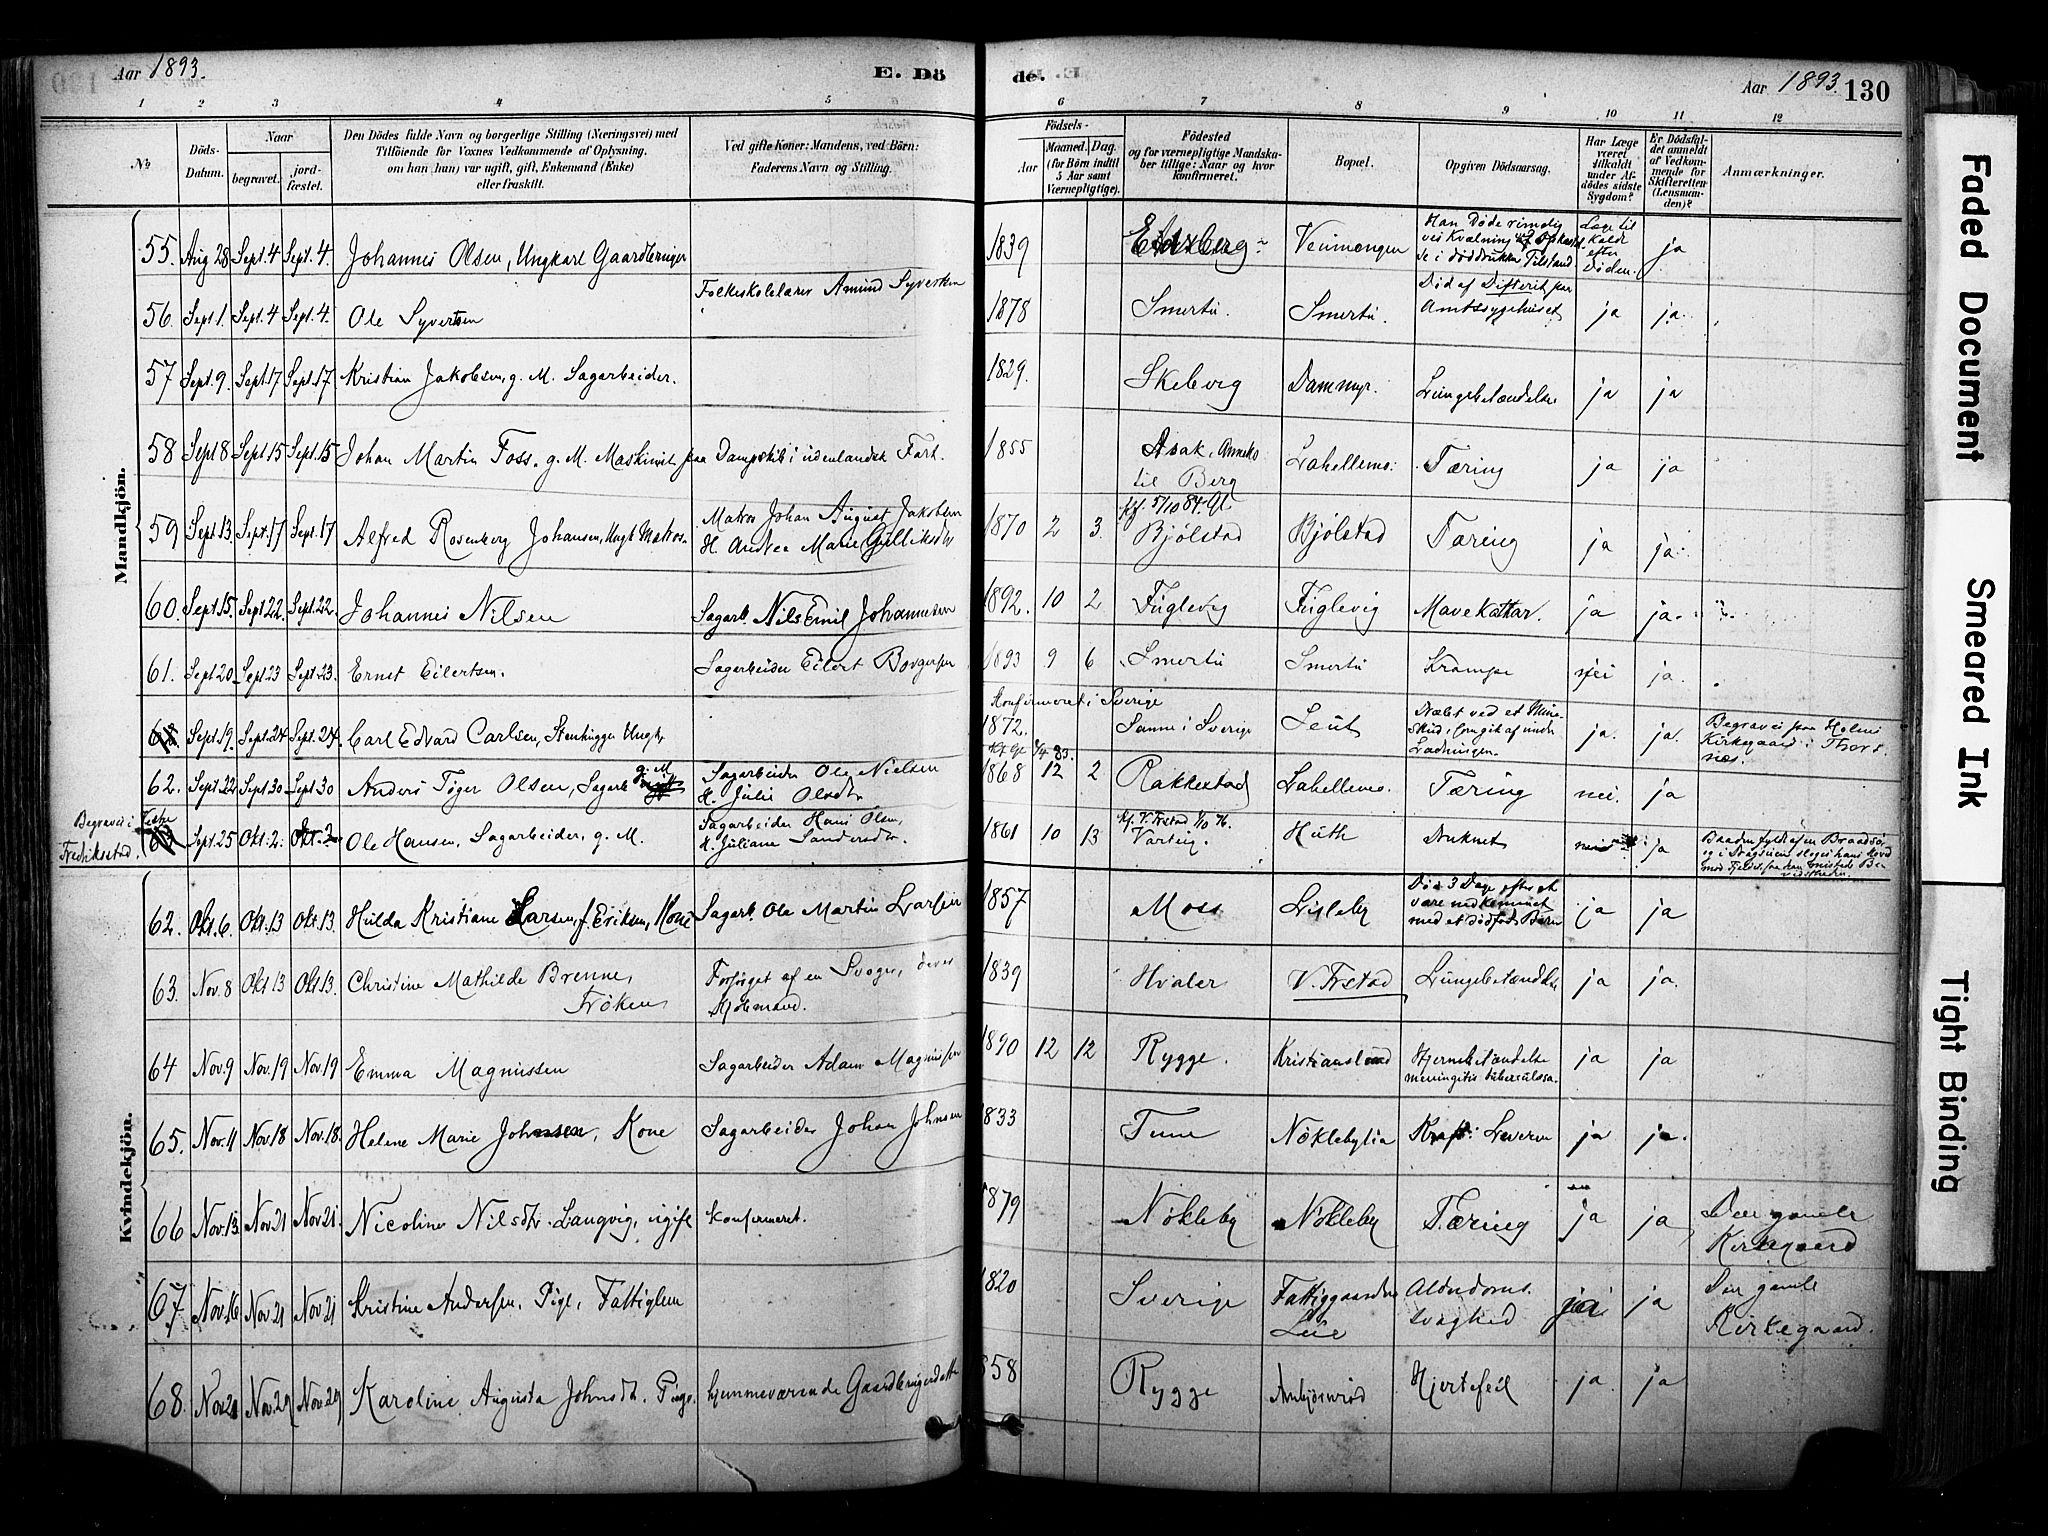 Aar 1893. E. Dö de. Aar 1893. 130
1 2 3 4 5 6 7 8 9 10 11 12
№ Döds-Datum. Naar begravet. jord-fæstet. Den Dödes fulde Navn og borgerlige Stilling (Næringsvei) med Tilföiende for Voxnes Vedkommende af Oplysning, om han (hun) var ugift, gift, Enkemand (Enke) eller fraskilt. Ved gifte Koner: Mandens, ved Börn: Faderens Navn og Stilling. Födsels- Aar Maaned. Dag. (for Börn indtil 5 Aar samt Værnepligtige). Födested og for værnepligtige Mandskaber tillige: Naar og hvor konfirmeret. Bopæl. Opgiven Dödsaarsag. Har Læge været tilkaldt under Afdödes sidste Sygdom? Er Dödsfaldet anmeldt af Vedkommende for Skifteretten (Lensmanden)? Anmærkninger.
Mandkjön.
55. Aug 28 Sept. 4 Sept. 4. Johannes Olsen, Ungkarl Gaardbruger 1839 Eidsberg Han Døde rimelig ved Kvælning Tilstand Læge til kaldt efter Døden. ja
56. Sept 1. Sept. 4 Sept. 4. Ole Syvertsen Folkeskolelærer Amund Syvertsen 1878 Smertu. Smertu. Død af Difterit paa Amtssygehuset ja ja.
57 Sept. 9. Sept 17 Sept. 17 Kristian Jakobsen, g. M. Sagarbeider. 1829. Skeberg Dammyr. Lungebetændelse ja ja
58 Sept 8 Sept 15 Sept. 15 Johan Martin Foss. g. M. Maskinist paa Dampskib i udenlandsk Fart. 1855 Asak, Anneks til Berg Labellemo. Tæring ja ja
59 Sept. 13. Sept. 17 Sept. 17 Alfred Rosenberg Johansen, Ungk Matros. Matros Johan August Jakobsen H. Andrea Marie Gulliksdtr 1870 2 3. Kf. 5/10 84. Gl Bjølstad Bjølstad Tæring ja ja.
60. Sept. 15. Sept 22. Sept. 22. Johannes Nilsen Sagarb. Nils Emil Johannesen 1892. 10 2. Fuglevig Fuglevig Mavekattar. ja ja.
61. Sept 20 Sept 23 Sept. 23. Ernst Eilertsen. Sagarbeider Eilert Borgersen 1893 9 6 Smertu Smertu Krampe nei ja.
Sept. 19. Sept. 24 Sept. 24. Carl Edvard Carlsen, Stenhugger Ungk. Konfirmeret i Sverige 1872. Sanne i Sverige Leut ja. ja. Begravet paa Holms Kirkegaard i Thorsnæs.
62. Sept 22 Sept 30 Sept 30 Anders Tøger Olsen, Sagarb g. M Sagarbeider Ole Nielsen H. Julie Olsdtr 1868 12 2 Rakkestad Labellemo. Tæring nei. ja
Begravet i Fredriksstad. Sept. 25 Okt. 2. Okt. 2 Ole Hansen, Sagarbeider, g. M. Sagarbeider Hans Olsen, H. Juliane Sandersdtr. 1861 10 13 Varteig. Huth Druknet nei ja
Kvindekjön.
62. Okt. 6. Okt. 13 Okt. 13. Hulda Kristiane Larsen, f. Eriksen, Kone Sagarb. Ole Martin Larsen 1857 Moss Lisleby Død 3 Dage efter at være nedkommet med et dødfødt Barn ja ja
63. Nov. 8 Okt 13 Okt 13. Christine Mathilde Brenne, Frøken Forsørget af en Svoger, Kjøbmand. 1839 Hvaler V. Frstad Lungebetændelse ja ja.
64 Nov. 9 Nov. 19 Nov. 19 Emma Magnussen Sagarbeider Adam Magnussen 1890 12 12 Rygge. Kristianslund Hjernebetændelse meningitis tuberculosa. ja ja
65. Nov. 11 Nov 18 Nov. 18. Helene Marie Johnsen, Kone Sagarbeider Johan Johnsen 1833 Tune Nøklebylia Kræft i Leveren ja ja.
66 Nov. 13 Nov 21 Nov 21. Nicoline Nilsdtr. Langvig, ugift konfirmeret. 1879 Nøkleby Nøkleby Tæring ja ja Den gamle Kirkegaard
67 Nov. 16 Nov. 21 Nov 21 Kristine Andersen, Pige, Fattiglem 1820 Sverige Fattiggaarden Lüe Alderdoms. svaghed ja ja Den gamle Kirkegaard.
68. Nov 21 Nov. 29 Nov. 29 Karoline Augusta Johnsdt. Pige hjemmeværende Gaardbrugerdatter 1858 Rygge Hjertefeil ja. ja
Faded Document
Smeared Ink
Tight Binding